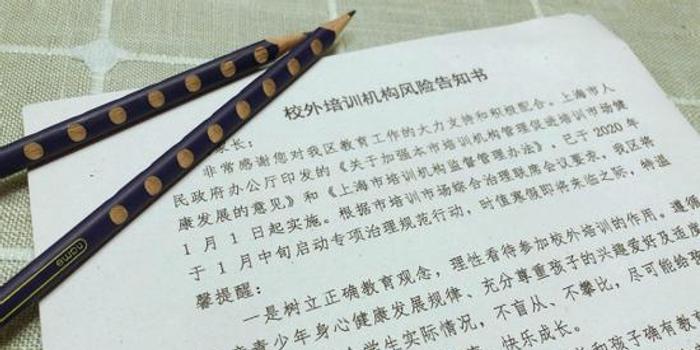 校外培训机构风险告知书
家长:
非常感谢您对我区教育工作的大力支持和积极配合。上海市人
民政府办公厅印发的《关于加强本市培训机构管理促进培训市场健
康发展的意见》和《上海市培训机构监督管理办法》，已于 2020 年
1 月 1 日起实施。根据市培训市场综合治理联席会议要求，我区将
于 1 月中旬启动专项治理规范行动，时值寒假即将来临之际，特温
馨提醒:
一是树立正确教育观念，理性看待参加校外培训的作用。遵循
青少年身心健康发展规律、充分尊重孩子的兴趣爱好及适度
学生实际情况，不盲从、不攀比，尽可能给孩
快乐成长。
和孩子确有教育
name